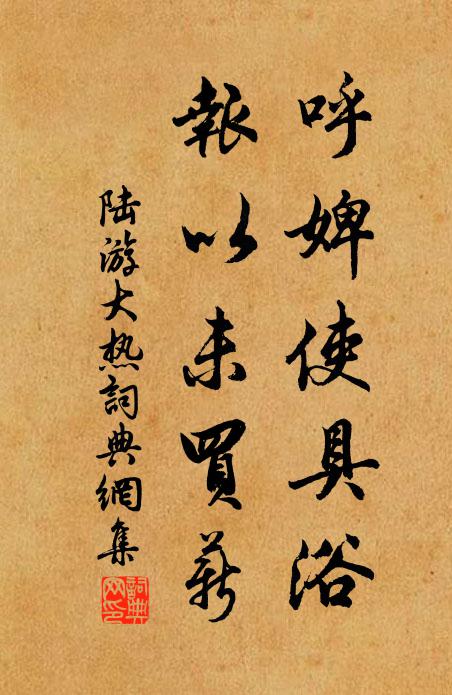 呼婢使具浴
報以未買薪
陆游大热詞典網集
詞典网印